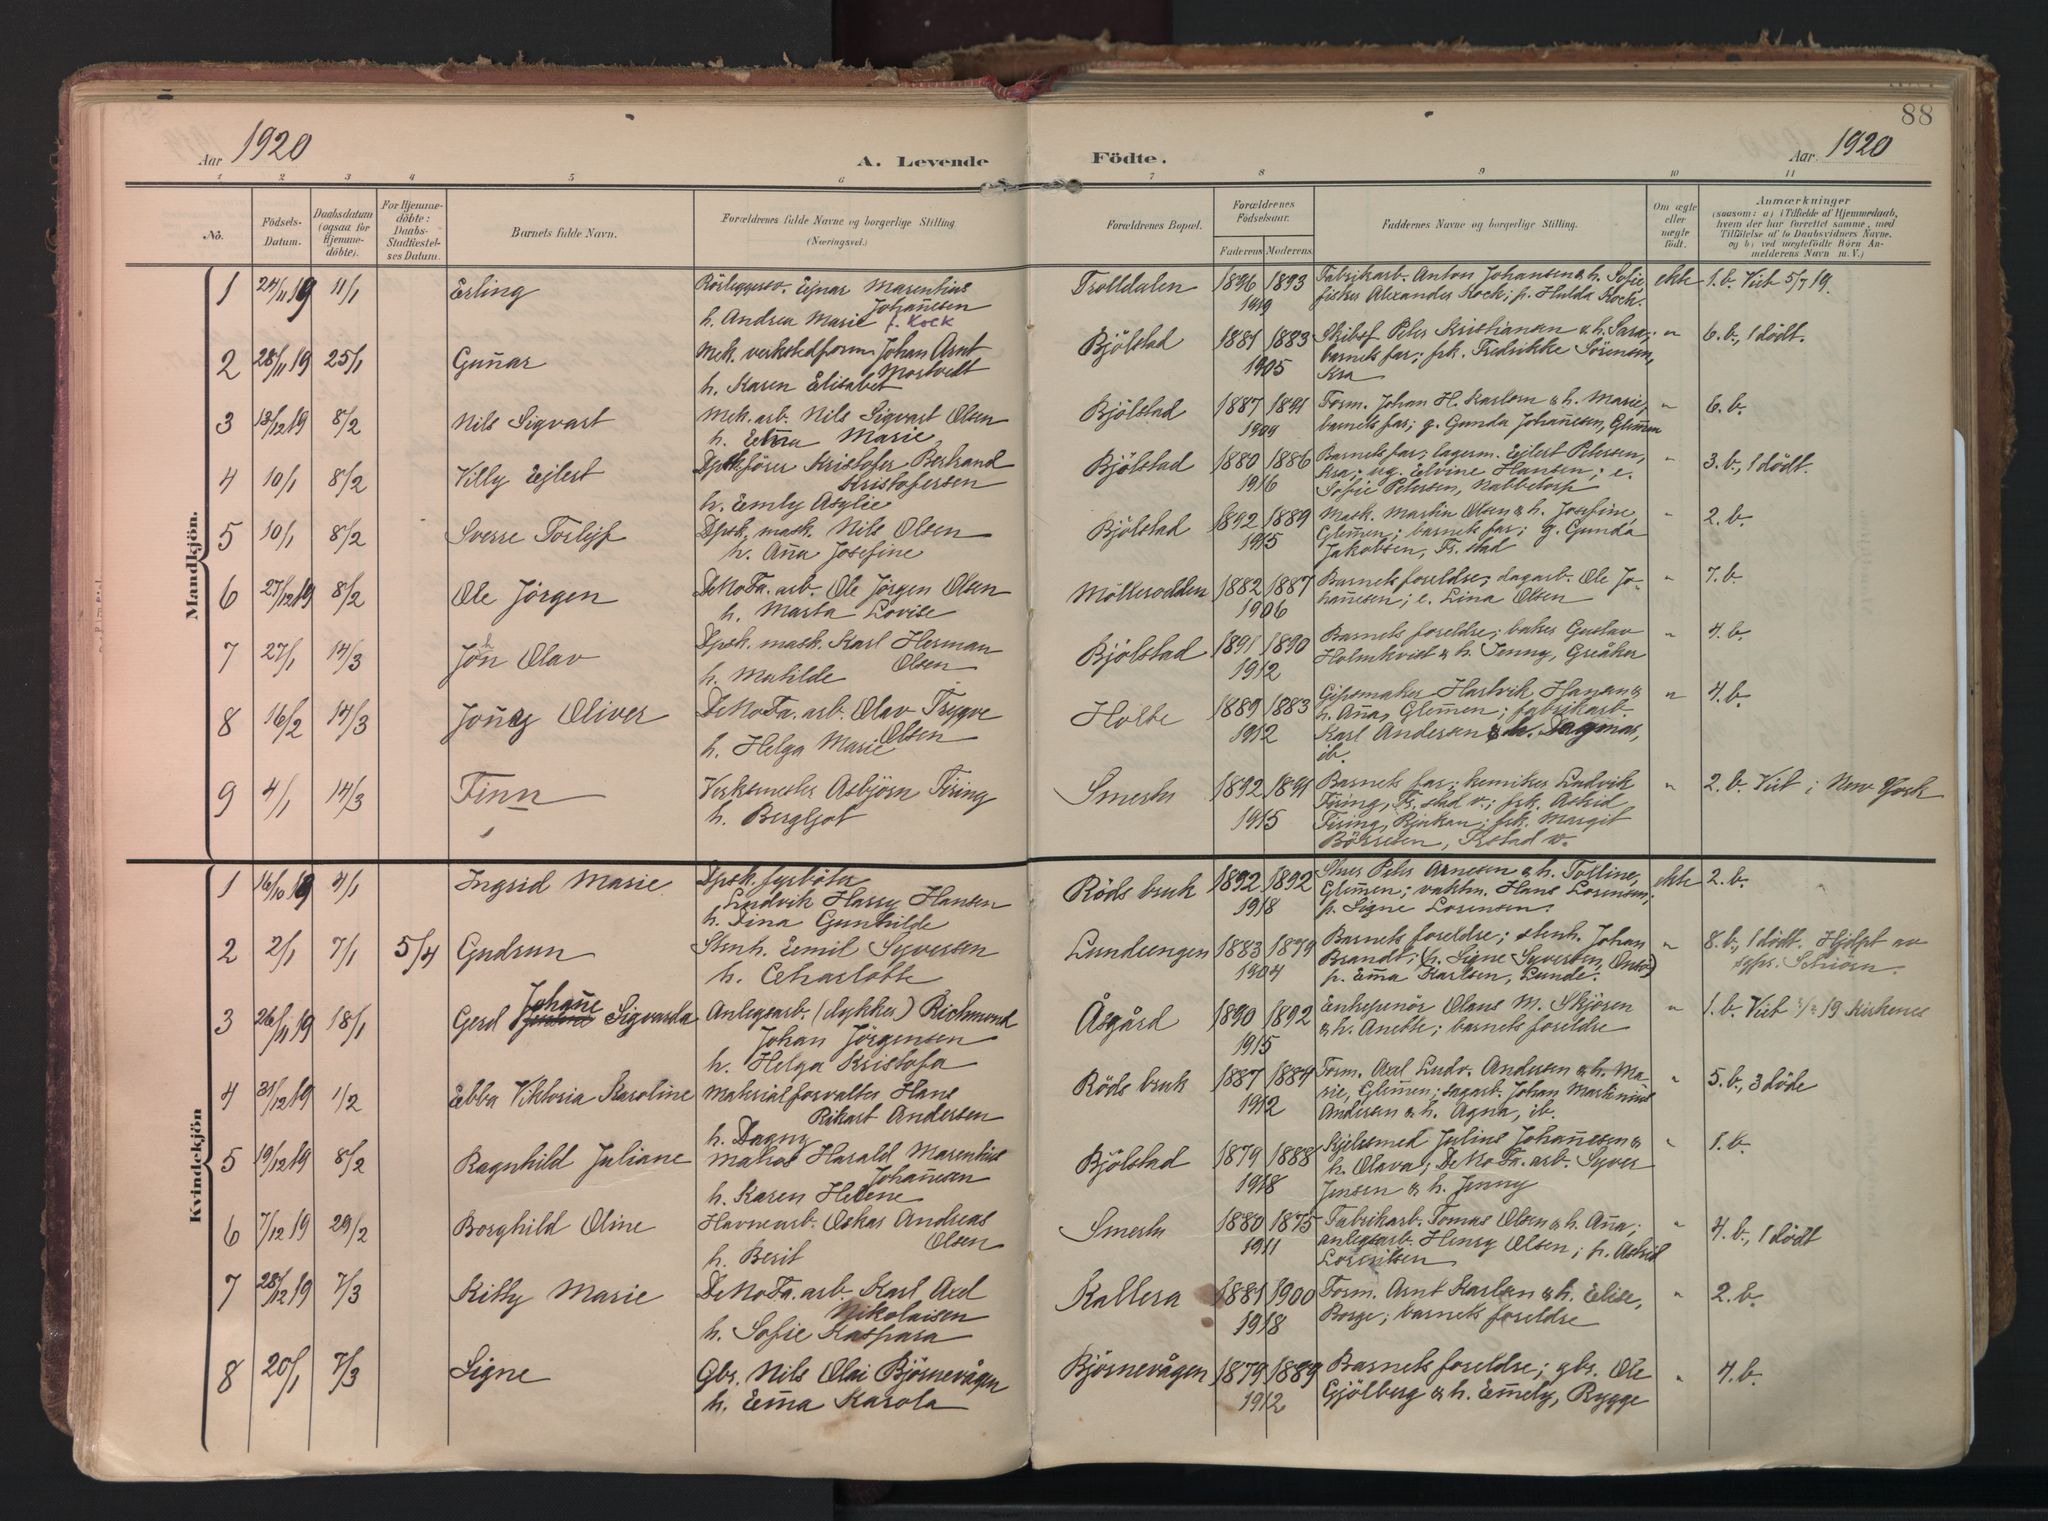 88
Aar 1920
A. Levende
Födte.
Aar 1920
1 2 3 4 5 6 7 8 9 10 11
No.
Födsels-
Datum.
Daabsdatum
(ogsaa for
Hjemme-
döbte).
For Hjemme-
döbte:
Daabs-
Stadfæstel-
ses Datum.
Barnets fulde Navn.
Forældrenes fulde Navne og borgerlige Stilling
(Næringsvei.)
Forældrenes Bopæl.
Forældrenes
Födselsaar.
Faderens Moderens
Faddernes Navne og borgerlige Stilling.
Om ægte
eller
uægte
födt.
Anmærkninger
(saasom: a) i Tilfælde af Hjemmedaab,
hvem der har forrettet samme, med
Tilföielse af to Daabsvidners Navne,
og b) ved uægtefödte Börn An-
melderens Navn m. V.)
Mandkjön.
1 24/11 19 11/1 Erling
Rörleggersv. Ejnar Marenhius
Johan̄esen
h. Andrea Marie f. Kock
Trolldalen 1896 1893
1919
Fabrikarb. Anton Johansen & h. Sofie,
fisker Alexander Kock; p. Hulda Kock.
ekte 1. b. Viet 5/7 19.
2 28/11 19 25/1 Gun̄ar
Mek. verkstedform. Johan Arnt
Mostvedt
h. Karen Elisabet
Bjölstad 1881 1883
1905
Skibsf. Peter Kristiansen & h. Sara;
barnets far; frk. Fredrikke Sörensen,
Kra
" 6. b., 1 dödt.
3 13/12 19 8/2 Nils Sigvart
Mek. arb. Nils Sigvart Olsen
h. Edna Marie
Bjölstad 1887 1891
1909
Form. Johan H. Karlsen & h. Marie,
barnets far; g. Gunda Johan̄esen, Glem̄en
" 6. b.
4 10/1 8/2 Villy Ejlert
Dpskfører Kristofer Bernhard
Kristofersen
h. Emly Asylie
Bjölstad 1880 1886
1916
Barnets far; lagerm. Ejlert Petersen,
Kra; ug. Elvine Hansen; e.
Sofie Petersen, Nabbetorp
" 3. b., 1 dödt.
5 10/1 8/2 Sverre Torlejf
Dpsk. mask. Nils Olsen
h. An̄a Josefine
Bjölstad 1892 1889
1915
Mask. Martin Olsen & h. Josefine,
Glem̄en; barnets far; g. Gunda
Jakobsen, Fr. stad
" 2. b.
6 27/12 19 8/2 Ole Jørgen
DeNoFa. arb. Ole Jørgen Olsen
h. Marta Lovise
Mölkerodden 1882 1887
1906
Barnets foreldre; dagarb. Ole Jo-
han̄esen; e. Lina Olsen
" 7. b.
7 27/1 14/3 John Olav
Dpsk. mask. Karl Herman
Olsen
h. Matilde
Bjölstad 1891 1890
1912
Barnets foreldre; baker Gustav
Holmkvist & h. Jenny, Greåker
" 4. b.
8 16/2 14/3 Jon̄y Oliver
DeNoFa. arb. Olav Trygve
Olsen
h. Helga Marie
Holte 1889 1883
1912
Gipsmaker Hartvik Hansen &
h. An̄a, Glem̄en; fabrikarb.
Karl Andersen & h. Dagmar,
ib.
" 4. b.
9 4/1 14/3 Finn
Verksmester Asbjørn Firing
h. Bergljot
Smertu 1892 1891
1915
Barnets far; kemiker Ludvik
Firing, Fr. stad v.; frk. Astrid
Firing, Rjukan; frk. Margit
Börresen, Kstad v.
" 2. b. Viet i New York
Kvindekjön
1 16/10 19 4/1 Ingrid Marie
Dpsk. fyrböter
Ludvik Harry Hansen
h. Tina Gunhilde
Röds bruk 1892 1892
1918
Skræd. Peter Arnesen & h. Torline,
Glem̄en; vaktm. Hans Lorensen;
p. Signe Lorensen.
ekte 2. b.
2 2/1 7/1 5/4 Gudrun
Stenh. Emil Syversen
h. Charlotte
Lundeengen 1883 1879
1904
Barnets foreldre; stenh. Johan
Brandt, (h. Signe Syversen, Onsö)
p. Em̄a Karlsen, Lunde.
" 8. b., 1 dödt. Hjelpt av
3 26/11 19 18/1 Gerd Johan̄e Sigvarda
Anlegsarb. (dykker) Richmond
Johan Jörgensen
h. Helga Kristofa
Åsgård 1890 1892
1915
Entrepenör Olaus M. Skjören
& h. Anette; barnets foreldre
" 1. b. Viet 19 Kirkenes
4 31/12 19 1/2 Ebba Viktoria Karoline
Materialforvalter Hans
Rikart Andersen
h. Dagny
Röds bruk 1887 1884
1912
Form. Axel Ludv. Andersen & h. Ma-
rie, Glem̄en; sagarb. Johan Martinius
Andersen & h. Agna, ib.
" 5. b., 3 döde
5 19/12 19 8/2 Ragnhild Juliane
Matros Harald Marenhius
Johan̄esen
h. Karen Helene
Bjölstad 1879 1888
1918
Kjelesmed Julius Johan̄esen &
h. Olava; DeNoFa. arb. Syver
Jensen & h. Jenny
" 1. b.
6 7/12 19 29/2 Borghild Oline
Havnearb. Oskar Andreas
Olsen
h. Berit
Smertu 1880 1875
1911
Fabrikarb. Tomas Olsen & h. An̄a;
anlegsarb. Henry Olsen; p. Astrid
Lorentsen
" 4. b., 1 dödt
7 28/12 19 7/3 Kitty Marie
DeNoFa. arb. Karl Axel
Nikolaisen
h. Sofie Kaspara
Kallera 1881 1900
1918
Form. Arnt Karlsen & h. Elise,
Borge; barnets foreldre
" 2. b.
8 20/1 7/3 Signe
Gbr. Nils Olai Björnevågen
h. Em̄a Karola
Björnevågen 1879 1889
1912
Barnets foreldre; gbr. Ole
Gjölberg & h. Em̄ely, Rygge
" 4. b.